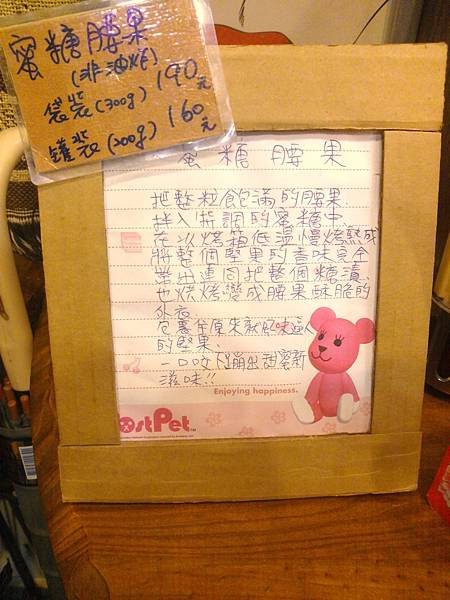 蜜糖腰果
(非油炸)
袋裝(300g) 190元
罐裝(200g) 160元
蜜糖腰果
把整粒飽滿的腰果
拌入特調的蜜糖中
在以烤箱低溫慢烤熟成
將整個堅果的香味完全
帶出連同把整個糖漬
也烘烤變成腰果酥脆的
外衣
包裹在原來就風味區
的堅果.
一口咬下蹦出甜蜜新
滋味!!
Enjoying happiness.
PostPet™